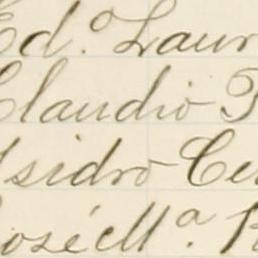 Ed.º Laur
Claudio P
Isidro Ce
José M.ª R